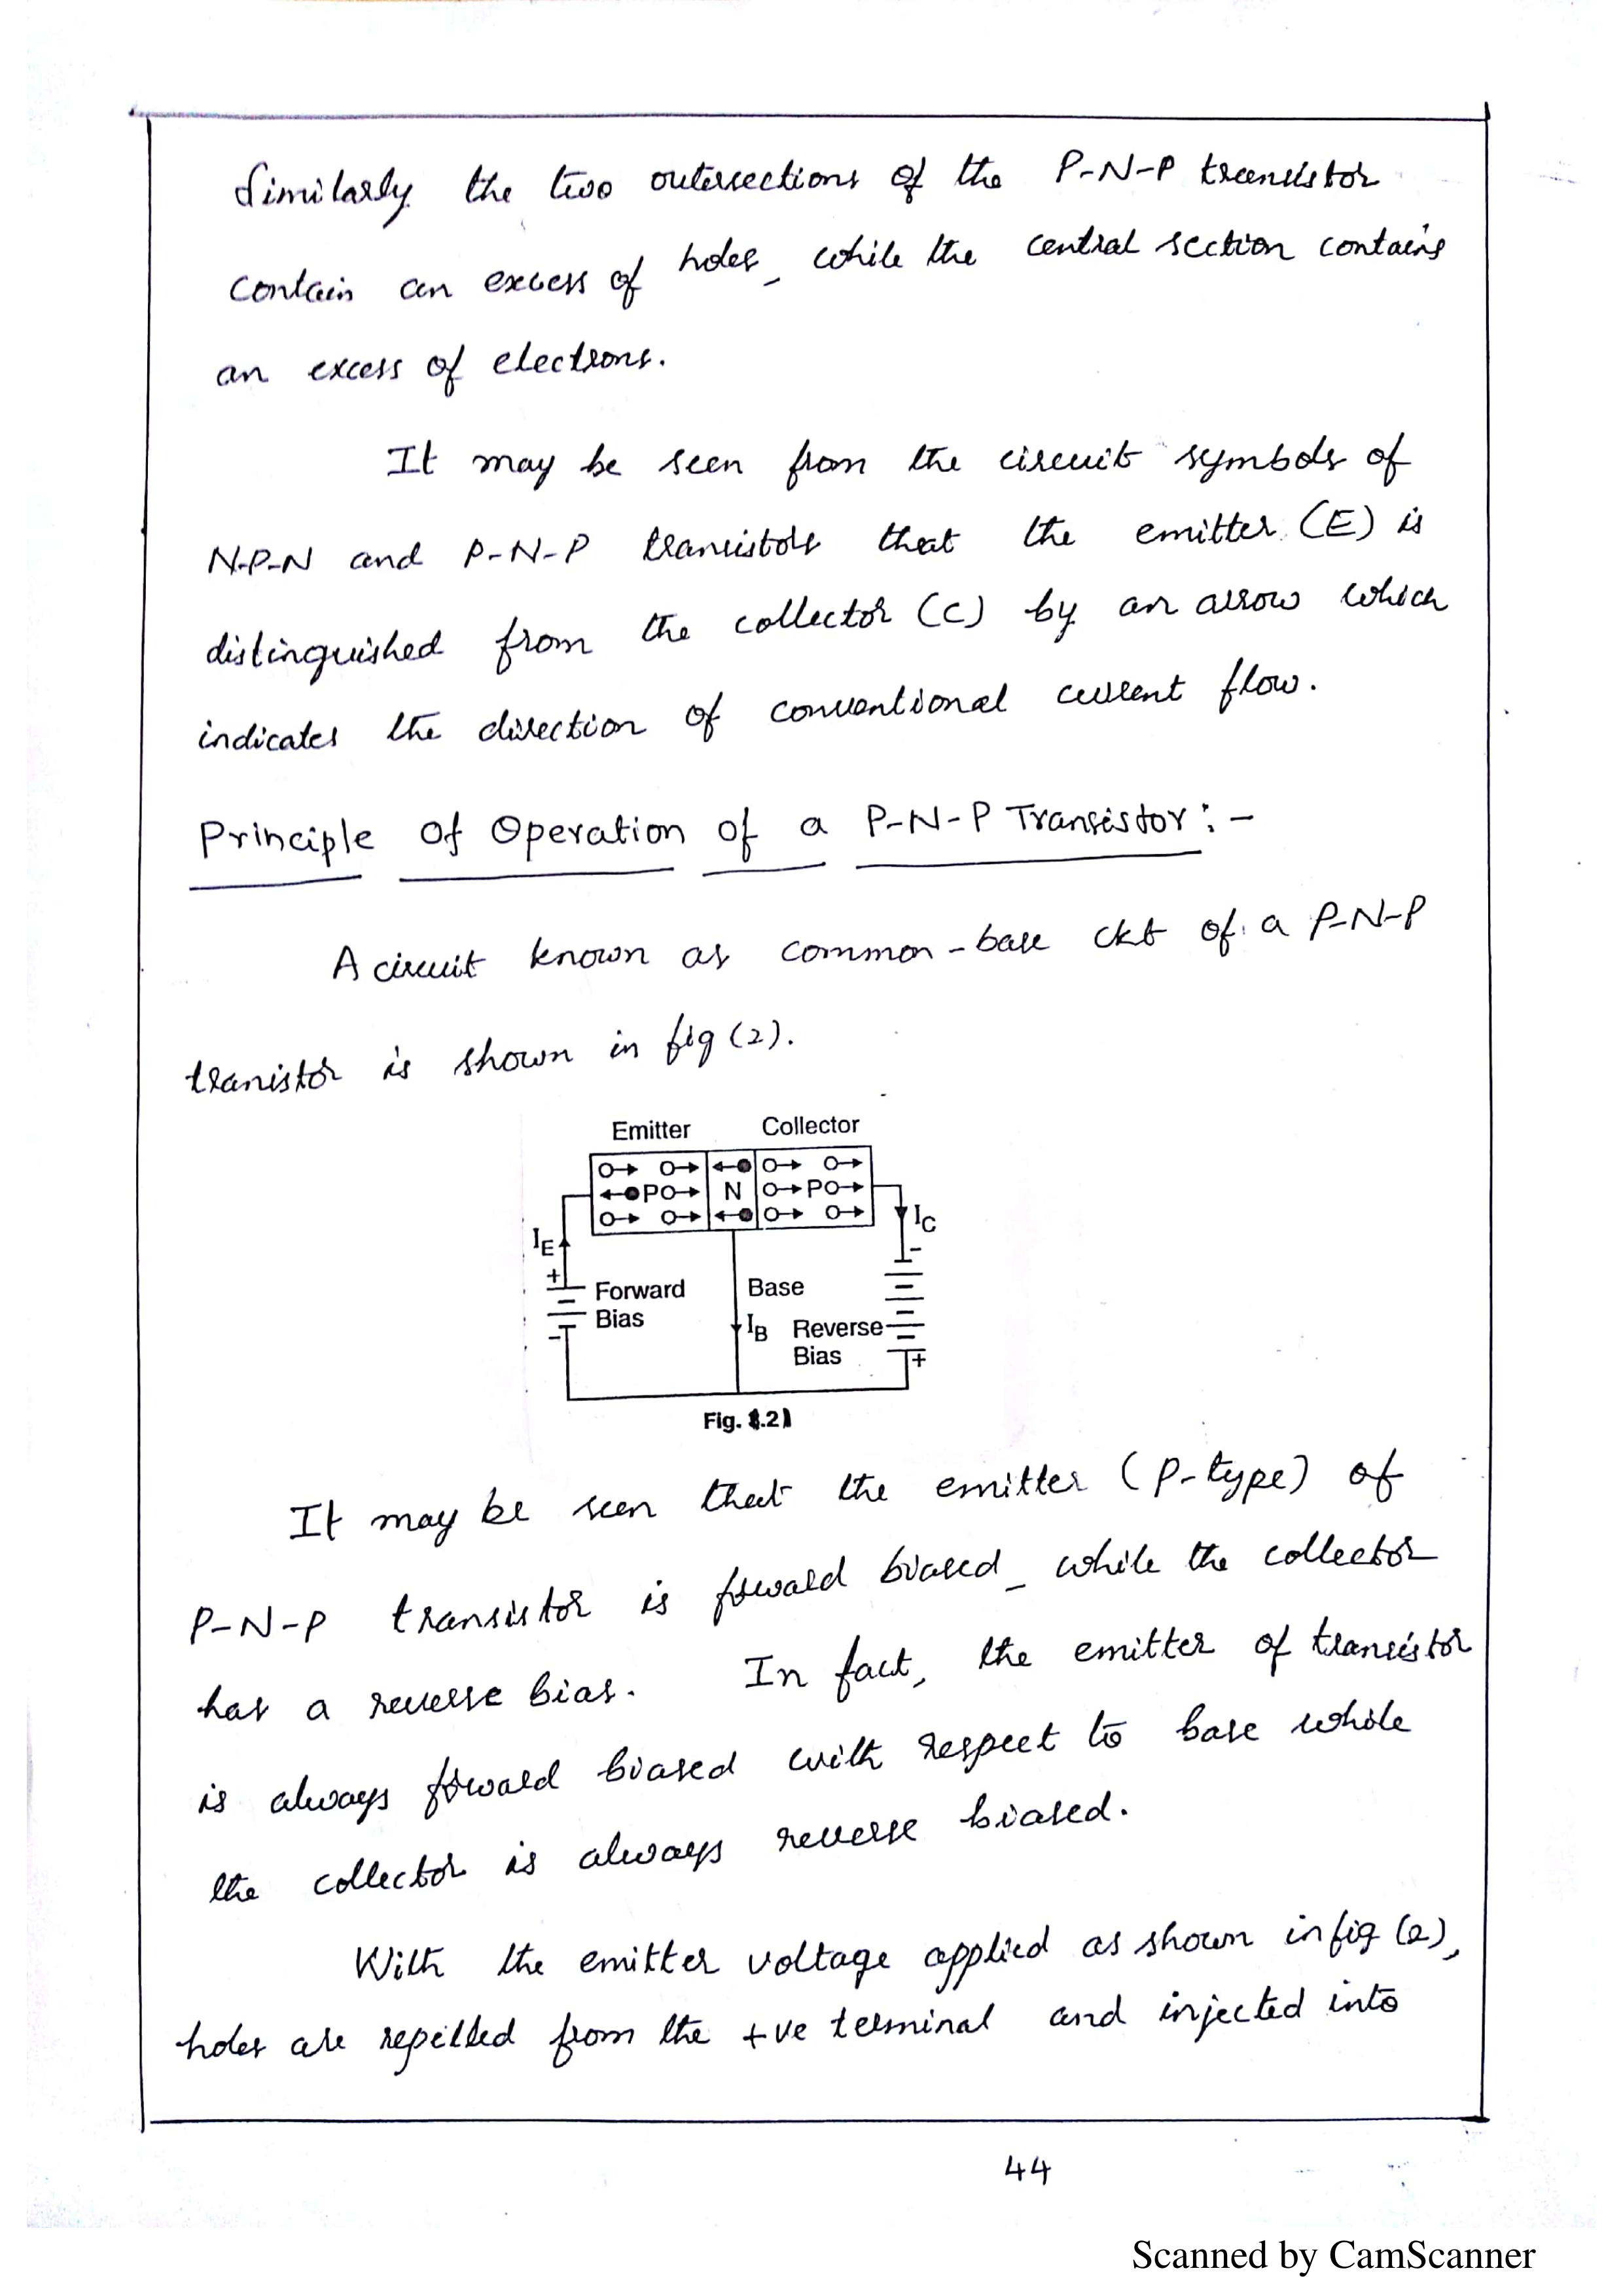 Similarly the two outersections of the P-N-P transistor
contain an excess of holes, while the central section contains
an excess of electrons.
It may be seen from the circuit symbols of
N-P-N and P-N-P transistors that the emitter (E) is
distinguished from the collector (C) by an arrow which
indicates the direction of conventional current flow.
Principle Of Operation of a P-N-P Transistor :-
A circuit known as common-base ckt of a P-N-P
tranistor is shown in fig (2).
Emitter Collector
P N P
IE IC
+ -
Forward Base
Bias IB Reverse
- Bias +
Fig. 1.2)
It may be seen that the emitter (P-type) of
P-N-P transistor is forward biased, while the collector
has a reverse bias. In fact, the emitter of transistor
is always forward biased with respect to base while
the collector is always reverse biased.
With the emitter voltage applied as shown in fig (2),
holes are repelled from the +ve terminal and injected into
44
Scanned by CamScanner